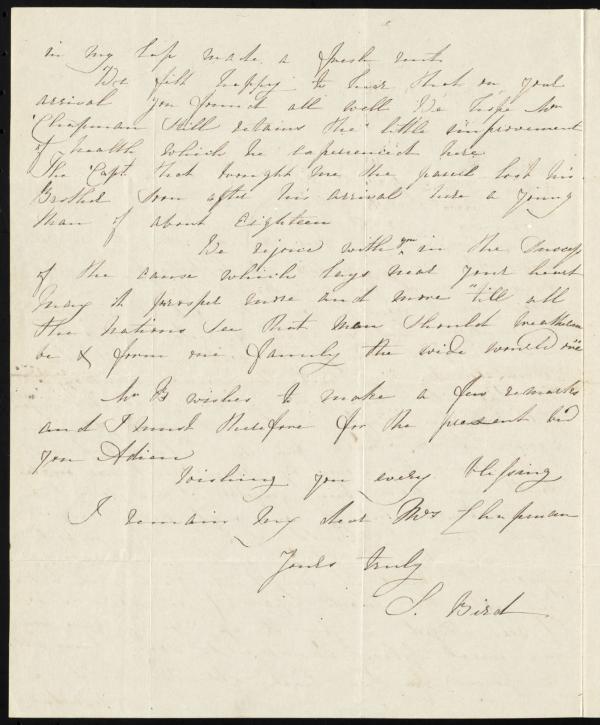 in my lap made a fresh rent
We felt happy to hear that on your
arrival you found all well We hope Mr
Chapman still retains the little improvement
of health which he experienced here
The Capt that brought me the parcel lost his
Brother soon after his arrival here a young
Man of about Eighteen
We rejoice with you in the Success
of the cause which lays near your heart
may it prosper more and more 'till all
the Nations see that Man should brethren
be & form one family the wide world o'er
Mr B wishes to make a few remarks
and I must therefore for the present bid
you Adieu
Wishing you every blessing
I remain my dear Mrs Chapman
Yours truly
S. Bird